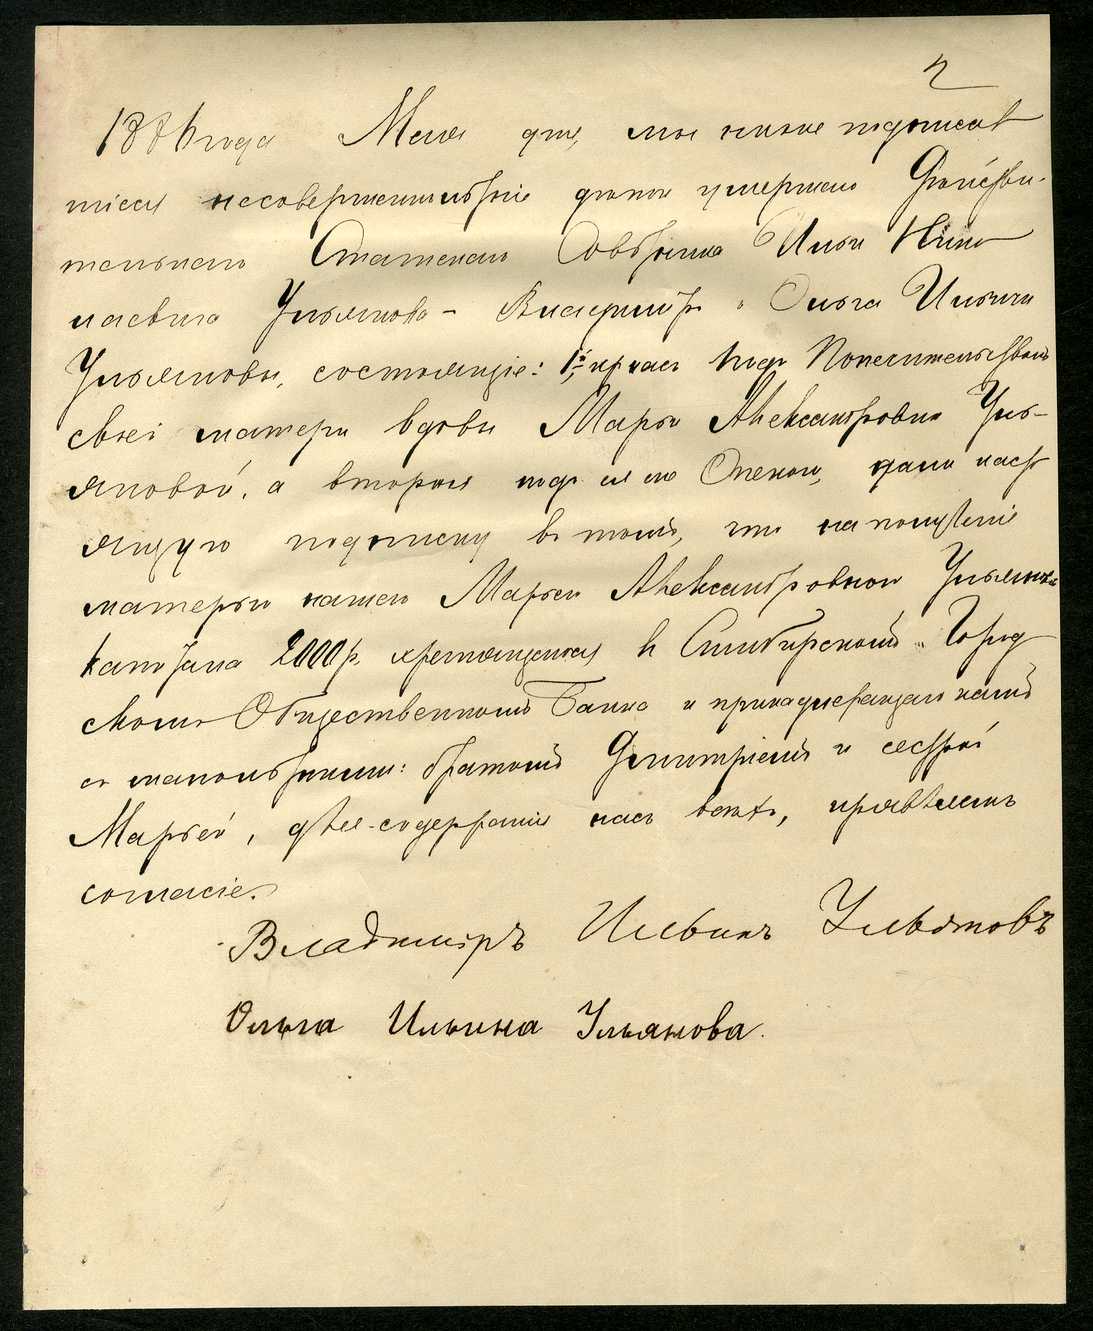 2
1886 года Мая дня, мы ниже подписав
шіеся несовершеннолѣтніе дѣти умершаго Дѣйстви-
тельнаго Статскаго Совѣтника Ильи Нико
лаевича Ульянова – Владиміръ и Ольга Ильичи
Ульяновы, состоящіе: 1й изъ насъ подъ Попечительствомъ
своей матери вдовы Марьи Александровны Уль-
яновой, а вторая подъ ея же Опекою, дали насто
ящую подписку въ томъ, что на полученіе
матерью нашею Марьею Александровною Ульяновою
капитала 2000 р. хранящагося въ Симбирскомъ Город
скомъ Общественномъ Банкѣ и принадлежащаго намъ
съ малолѣтними: братомъ Дмитріемъ и сестрой
Марьей, для содержанія насъ всѣхъ, изъявляемъ
согласіе.
Владиміръ Ильинъ Ульяновъ
Ольга Ильина Ульянова.